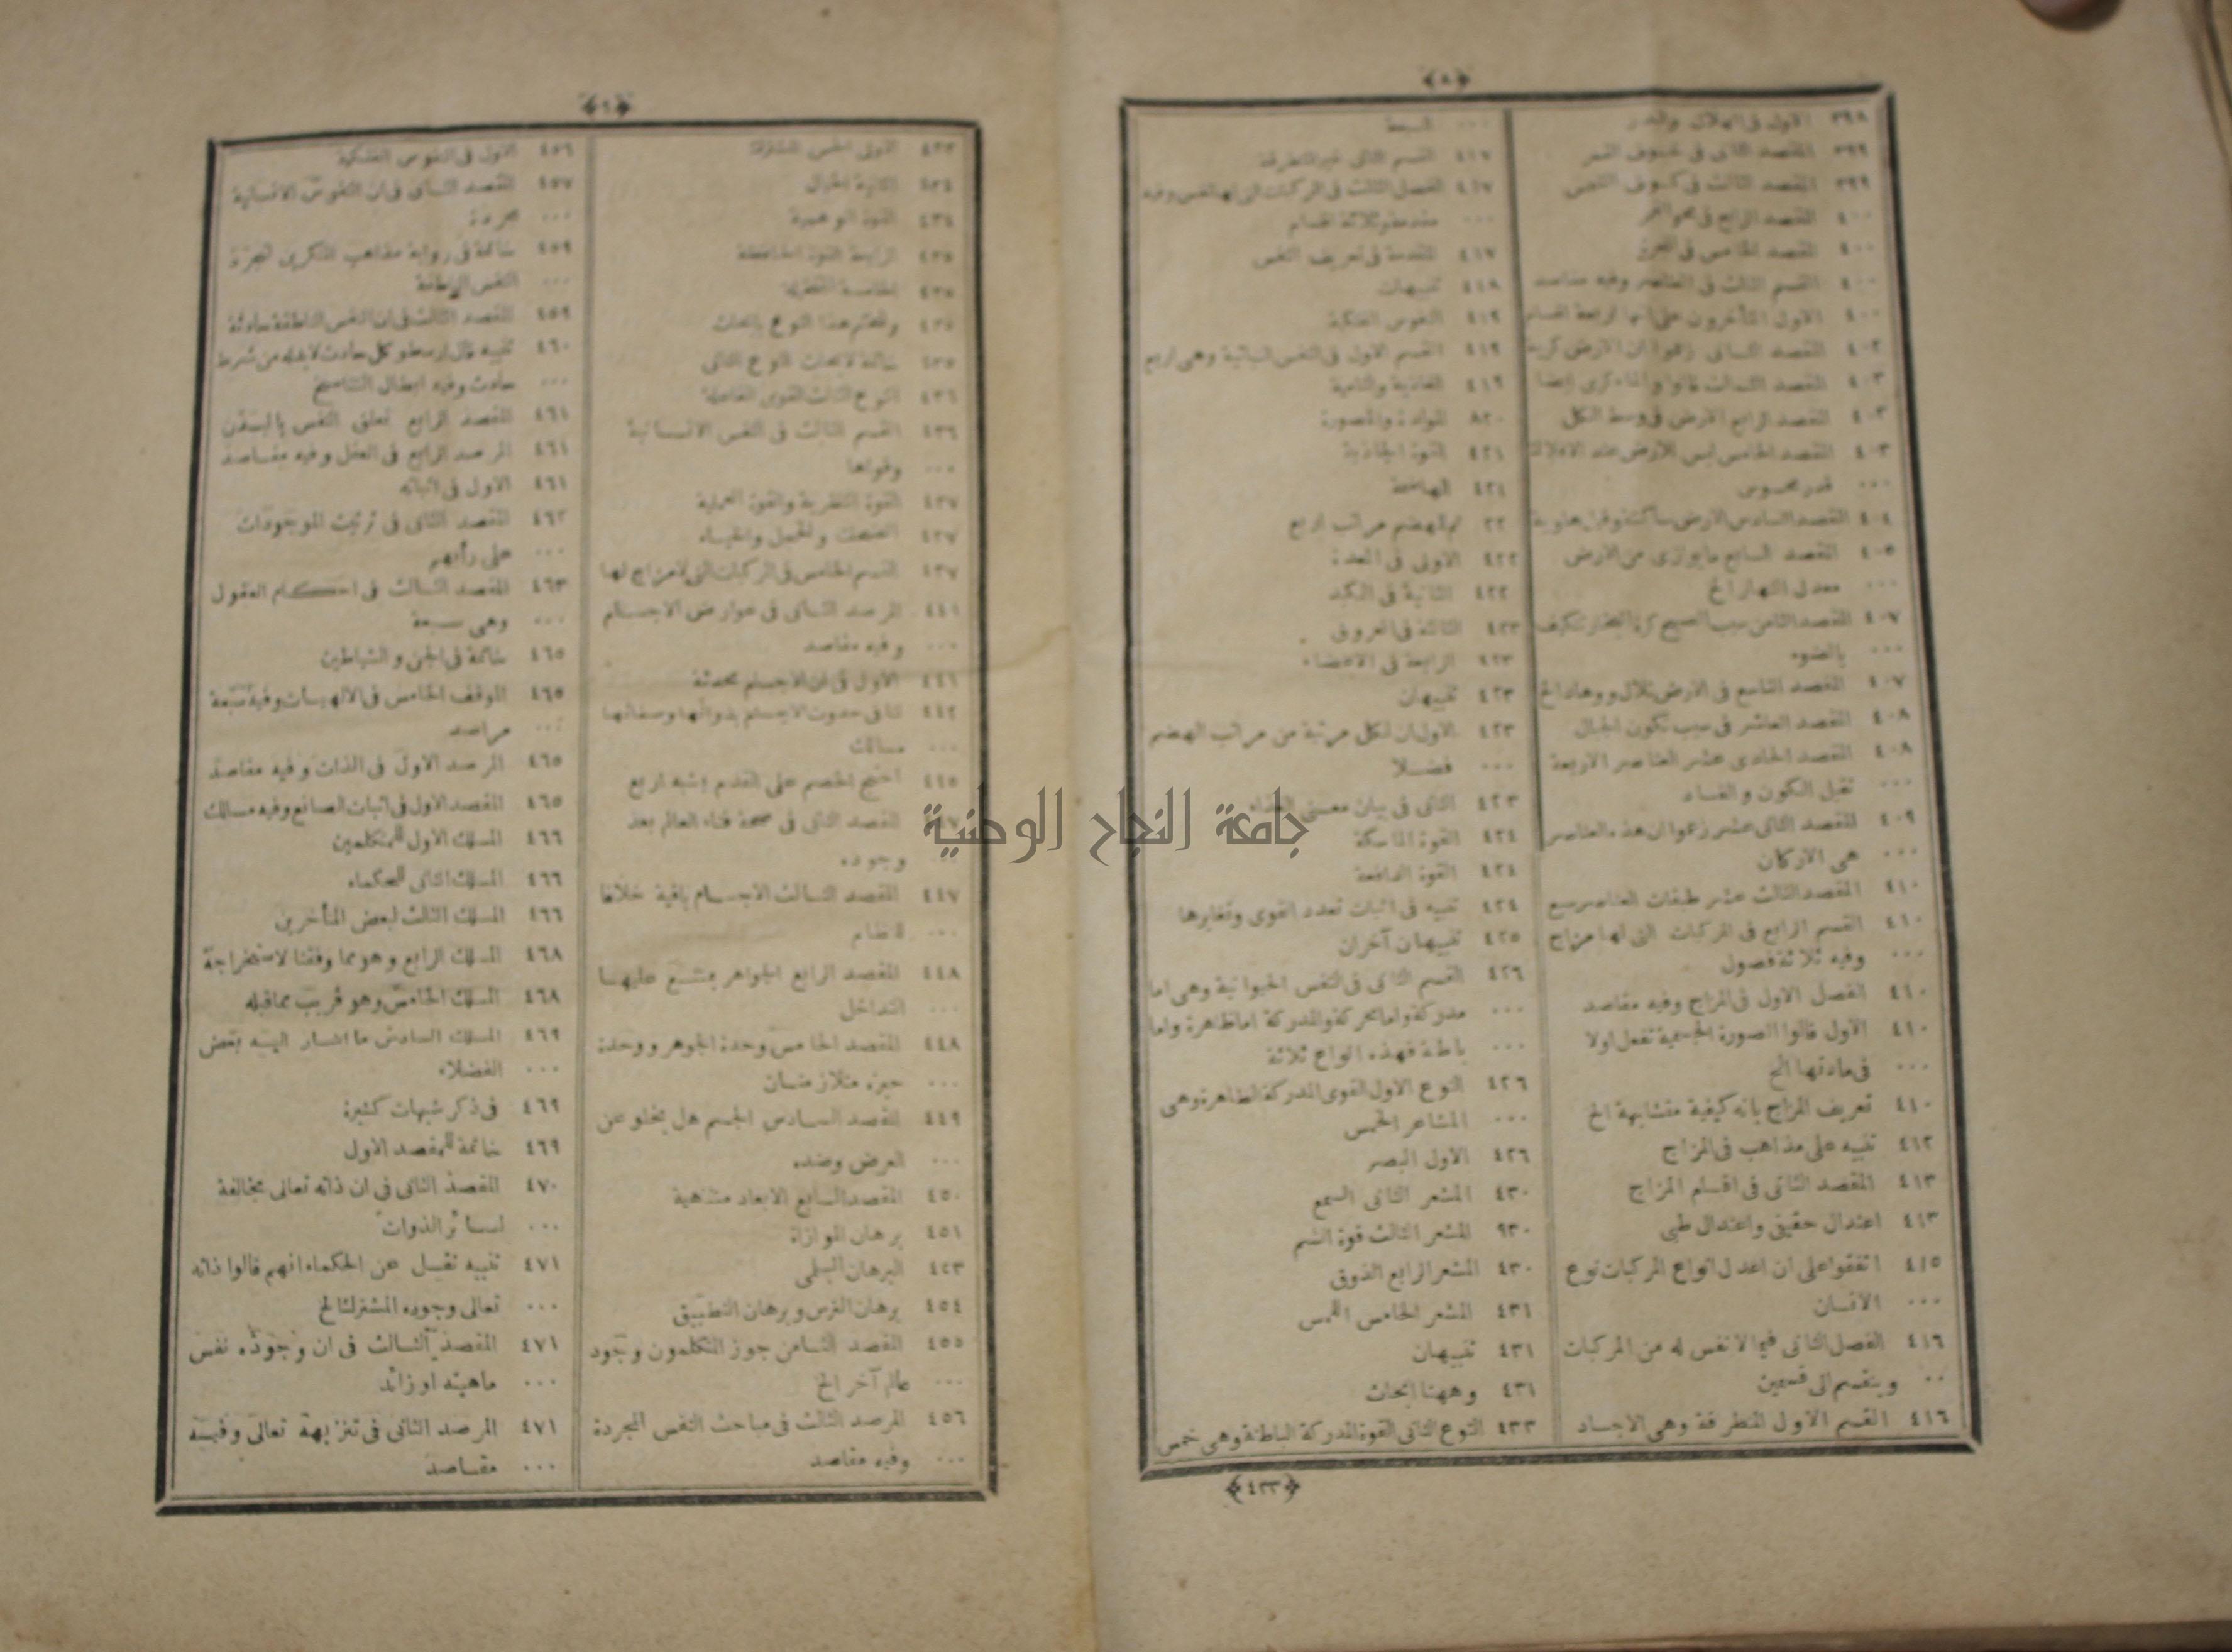 ﴿٨﴾
٣٩٨ الاول فى الهلال والبدر
٣٩٩ المقصد الثانى فى خسوف القمر
٣٩٩ المقصد الثالث فى كسوف الشمس
٤٠٠ المقصد الرابع فى محو القمر
٤٠٠ المقصد الخامس فى المجرة
٤٠٠ القسم الثالث فى العناصر وفيه مقاصد
٤٠٠ الاول المتأخرون على انها اربعة اقسام
٤٠٢ المقصد الثانى زعموا ان الارض كرية
٤٠٣ المقصد الثالث قالوا والماء كرى ايضا
٤٠٣ المقصد الرابع الارض فى وسط الكل
٤٠٣ المقصد الخامس ليس للارض عند الافلاك
٠٠٠ قدر محسوس
٤٠٤ المقصد السادس الارض ساكنة وقيل هاوية
٤٠٥ المقصد السابع مايوازى من الارض
٠٠٠ معدل النهار الخ
٤٠٧ المقصد الثامن سبب الصبح كرة البخار تتكيف
٠٠٠ بالضوء
٤٠٧ المقصد التاسع فى الارض تلال ووهاد الخ
٤٠٨ المقصد العاشر فى سبب تكون الجبال
٤٠٨ المقصد الحادى عشر العناصر الاربعة
٠٠٠ تقبل الكون والفساد
٤٠٩ المقصد الثانى عشر زعموا ان هذه العناصر
٠٠٠ هى الاركان
٤١٠ المقصد الثالث عشر طبقات العناصر سبع
٤١٠ القسم الرابع فى المركبات التى لها مزاج
٠٠٠ وفيه ثلاثة فصول
٤١٠ الفصل الاول فى المزاج وفيه مقاصد
٤١٠ الاول قالوا الصورة الجسمية تفعل اولا
٠٠٠ فى مادتها الخ
٤١٠ تعريف المزاج بانه كيفية متشابهة الخ
٤١٢ تنبيه على مذاهب فى المزاج
٤١٣ المقصد الثانى فى اقسام المزاج
٤١٣ اعتدال حقيقى واعتدال طبى
٤١٥ اتفقوا على ان اعدل انواع المركبات نوع
٠٠٠ الانسان
٤١٦ الفصل الثانى فيما لا نفس له من المركبات
٠٠ وينقسم الى قسمين
٤١٦ القسم الاول المتطرقة وهى الاجساد
٠٠٠ السبعة
٤١٧ القسم الثانى غير المتطرقة
٤١٧ الفصل الثالث فى المركبات التى لها نفس وفيه
٠٠٠ مقدمة وثلاثة اقسام
٤١٧ المقدمة فى تعريف النفس
٤١٨ تنبيهات
٤١٩ النفوس الفلكية
٤١٩ القسم الاول فى النفس النباتية وهى اربع
٤١٩ الغاذية والنامية
٨٢٠ المولدة والمصورة
٤٢١ القوة الجاذبة
٤٢١ الهاضمة
٢٢ ثم للهضم مراتب اربع
٤٢٢ الاولى فى المعدة
٤٢٢ الثانية فى الكبد
٤٢٣ الثالثة فى العروق
٤٢٣ الرابعة فى الاعضاء
٤٢٣ تنبيهان
٤٢٣ الاول ان لكل مرتبة من مراتب الهضم
٠٠٠ فضلا
٤٢٣ الثانى فى بيان معنى الغذاء
٤٢٤ القوة الماسكة
٤٢٤ القوة الدافعة
٤٢٤ تنبيه فى اثبات تعدد القوى وتغايرها
٤٢٥ تنبيهان آخران
٤٢٦ القسم الثانى فى النفس الحيوانية وهى اما
٠٠٠ مدركة واما محركة والمدركة اما ظاهرة واما
٠٠٠ باطنة فهذه انواع ثلاثة
٤٢٦ النوع الاول القوى المدركة الظاهرة وهى
٠٠٠ المشاعر الخمس
٤٢٦ الاول البصر
٤٣٠ المشعر الثانى السمع
٩٣٠ المشعر الثالث قوة الشم
٤٣٠ المشعر الرابع الذوق
٤٣١ المشعر الخامس اللمس
٤٣١ تنبيهان
٤٣١ وههنا ابحاث
٤٣٣ النوع الثانى القوة المدركة الباطنة وهى خمس
﴿٤٣٣﴾
﴿٩﴾
٤٣٣ الاولى الحس المشترك
٤٣٤ الثانية الخيال
٤٣٤ القوة الوهمية
٤٣٥ الرابعة القوة الحافظة
٤٣٥ الخامسة المتخيلة
٤٣٥ ولنختم هذا النوع بابحاث
٤٣٥ خاتمة لابحاث النوع الثانى
٤٣٦ النوع الثالث القوى الفاعلة
٤٣٦ القسم الثالث فى النفس الانسانية
٠٠٠ وقواها
٤٣٧ القوة النظرية والقوة العملية
٤٣٧ الضحك والخجل والحياء
٤٣٧ القسم الخامس فى المركبات التى لا مزاج لها
٤٤١ المرصد الثانى فى عوارض الاجسام
٠٠٠ وفيه مقاصد
٤٤١ الاول فى ان الاجسام محدثة
٤٤٢ لنا فى حدوث الاجسام بذواتها وصفاتها
٠٠٠ مسالك
٤٤٥ احتج الخصم على القدم بشبه اربع
المقصد الثانى فى صحة فناء العالم بعد
وجوده
٤٤٧ المقصد الثالث الاجسام باقية خلافا
٠٠٠ للنظام
٤٤٨ المقصد الرابع الجواهر يمتنع عليها
٠٠٠ التداخل
٤٤٨ المقصد الخامس وحدة الجوهر ووحدة
٠٠٠ حيزه متلازمتان
٤٤٩ المقصد السادس الجسم هل يخلو عن
٠٠٠ العرض وضده
٤٥٠ المقصد السابع الابعاد متناهية
٤٥١ برهان الموازاة
٤٢٣ البرهان السلمى
٤٥٤ برهان الترس وبرهان التطبيق
٤٥٥ المقصد الثامن جوز المتكلمون وجود
٠٠٠ عالم آخر الخ
٤٥٦ المرصد الثالث فى مباحث النفس المجردة
٠٠٠ وفيه مقاصد
٤٥٦ الاول فى النفوس الفلكية
٤٥٧ المقصد الثانى فى ان النفوس الانسانية
٠٠٠ مجردة
٤٥٩ خاتمة فى رواية مذاهب المنكرين لتجرد
٠٠٠ النفس الناطقة
٤٥٩ المقصد الثالث فى ان النفس الناطقة حادثة
٤٦٠ تنبيه قال ارسطو كل حادث لابد له من شرط
٠٠٠ حادث وفيه ابطال التناسخ
٤٦١ المقصد الرابع تعلق النفس بالبدن
٤٦١ المرصد الرابع فى العقل وفيه مقاصد
٤٦١ الاول فى اثباته
٤٦٢ المقصد الثانى فى ترتيب الموجودات
٠٠٠ على رأيهم
٤٦٣ المقصد الثالث فى احكام العقول
٠٠٠ وهى سبعة
٤٦٥ خاتمة فى الجن والشياطين
٤٦٥ الموقف الخامس فى الالهيات وفيه سبعة
٠٠٠ مراصد
٤٦٥ المرصد الاول فى الذات وفيه مقاصد
٤٦٥ المقصد الاول فى اثبات الصانع وفيه مسالك
٤٦٦ المسلك الاول للمتكلمين
٤٦٦ المسلك الثانى للحكماء
٤٦٦ المسلك الثالث لبعض المتأخرين
٤٦٨ المسلك الرابع وهو مما وفقنا لاستخراجة
٤٦٨ المسلك الخامس وهو قريب مما قبله
٤٦٩ المسلك السادس ما اشار اليه بعض
٠٠٠ الفضلاء
٤٦٩ فى ذكر شبهات كثيرة
٤٦٩ خاتمة للمقصد الاول
٤٧٠ المقصد الثانى فى ان ذاته تعالى مخالفة
٠٠٠ لسائر الذوات
٤٧١ تنبيه نقل عن الحكماء انهم قالوا ذاته
٠٠٠ تعالى وجوده المشترك الخ
٤٧١ المقصد الثالث فى ان وجوده نفس
٠٠٠ ماهيته او زائد
٤٧١ المرصد الثانى فى تنزيهه تعالى وفيه
٠٠٠ مقاصد
جامعة النجاح الوطنية